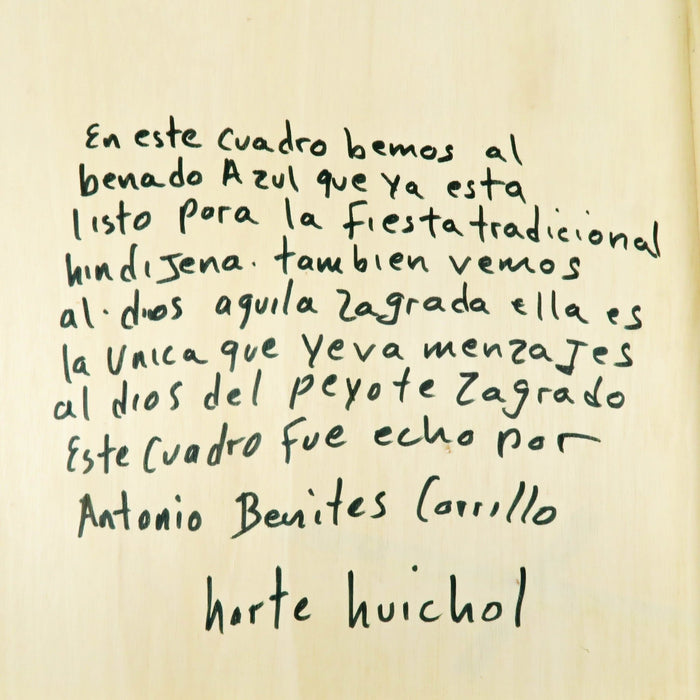 En este cuadro bemos al
benado Azul que ya esta
listo para la fiesta tradicional
hindijena. tambien vemos
al dios aguila zagrada ella es
la unica que yeva menzajes
al dios del peyote zagrado
Este cuadro fue echo por
Antonio Benites Carrillo
harte huichol